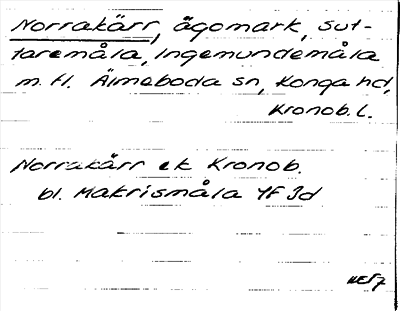 Norrakärr, ägomark, Sut-
taremåla, Ingemundemåla
m. fl. Älmeboda sn, Konga hd,
Kronob. l.
Norrakärr ek Kronob.
bl. Makrismåla 4F 3d